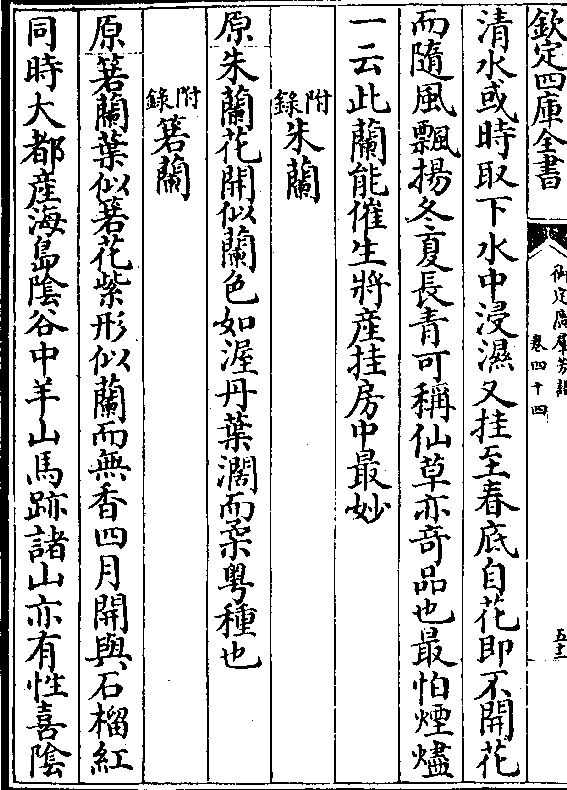 欽定四庫全書
御定廣羣芳譜
卷四十四
五士
清水或時取下水中浸濕又挂至春底自花即不開花
而隨風飄揚冬夏長青可稱仙草亦竒品也最怕煙燼
一云此蘭能催生將産挂房中最妙
附錄朱蘭
原朱蘭花開似蘭色如渥丹葉濶而柔粤種也
附錄箬蘭
原箬蘭葉似箬花紫形似蘭而無香四月開與石榴紅
同時大都産海島陰谷中羊山馬跡諸山亦有性喜陰